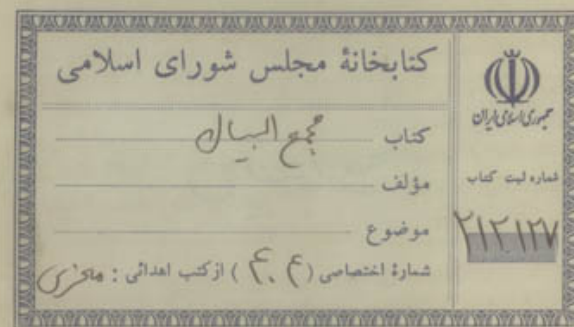 کتابخانهٔ مجلس شورای اسلامی
کتاب مجمع البیان
مؤلف
موضوع
شمارهٔ اختصاصی ( ) از کتب اهدائی :
جمهوری اسلامی ایران
شماره ثبت کتاب
۲۱۲۱۲۷